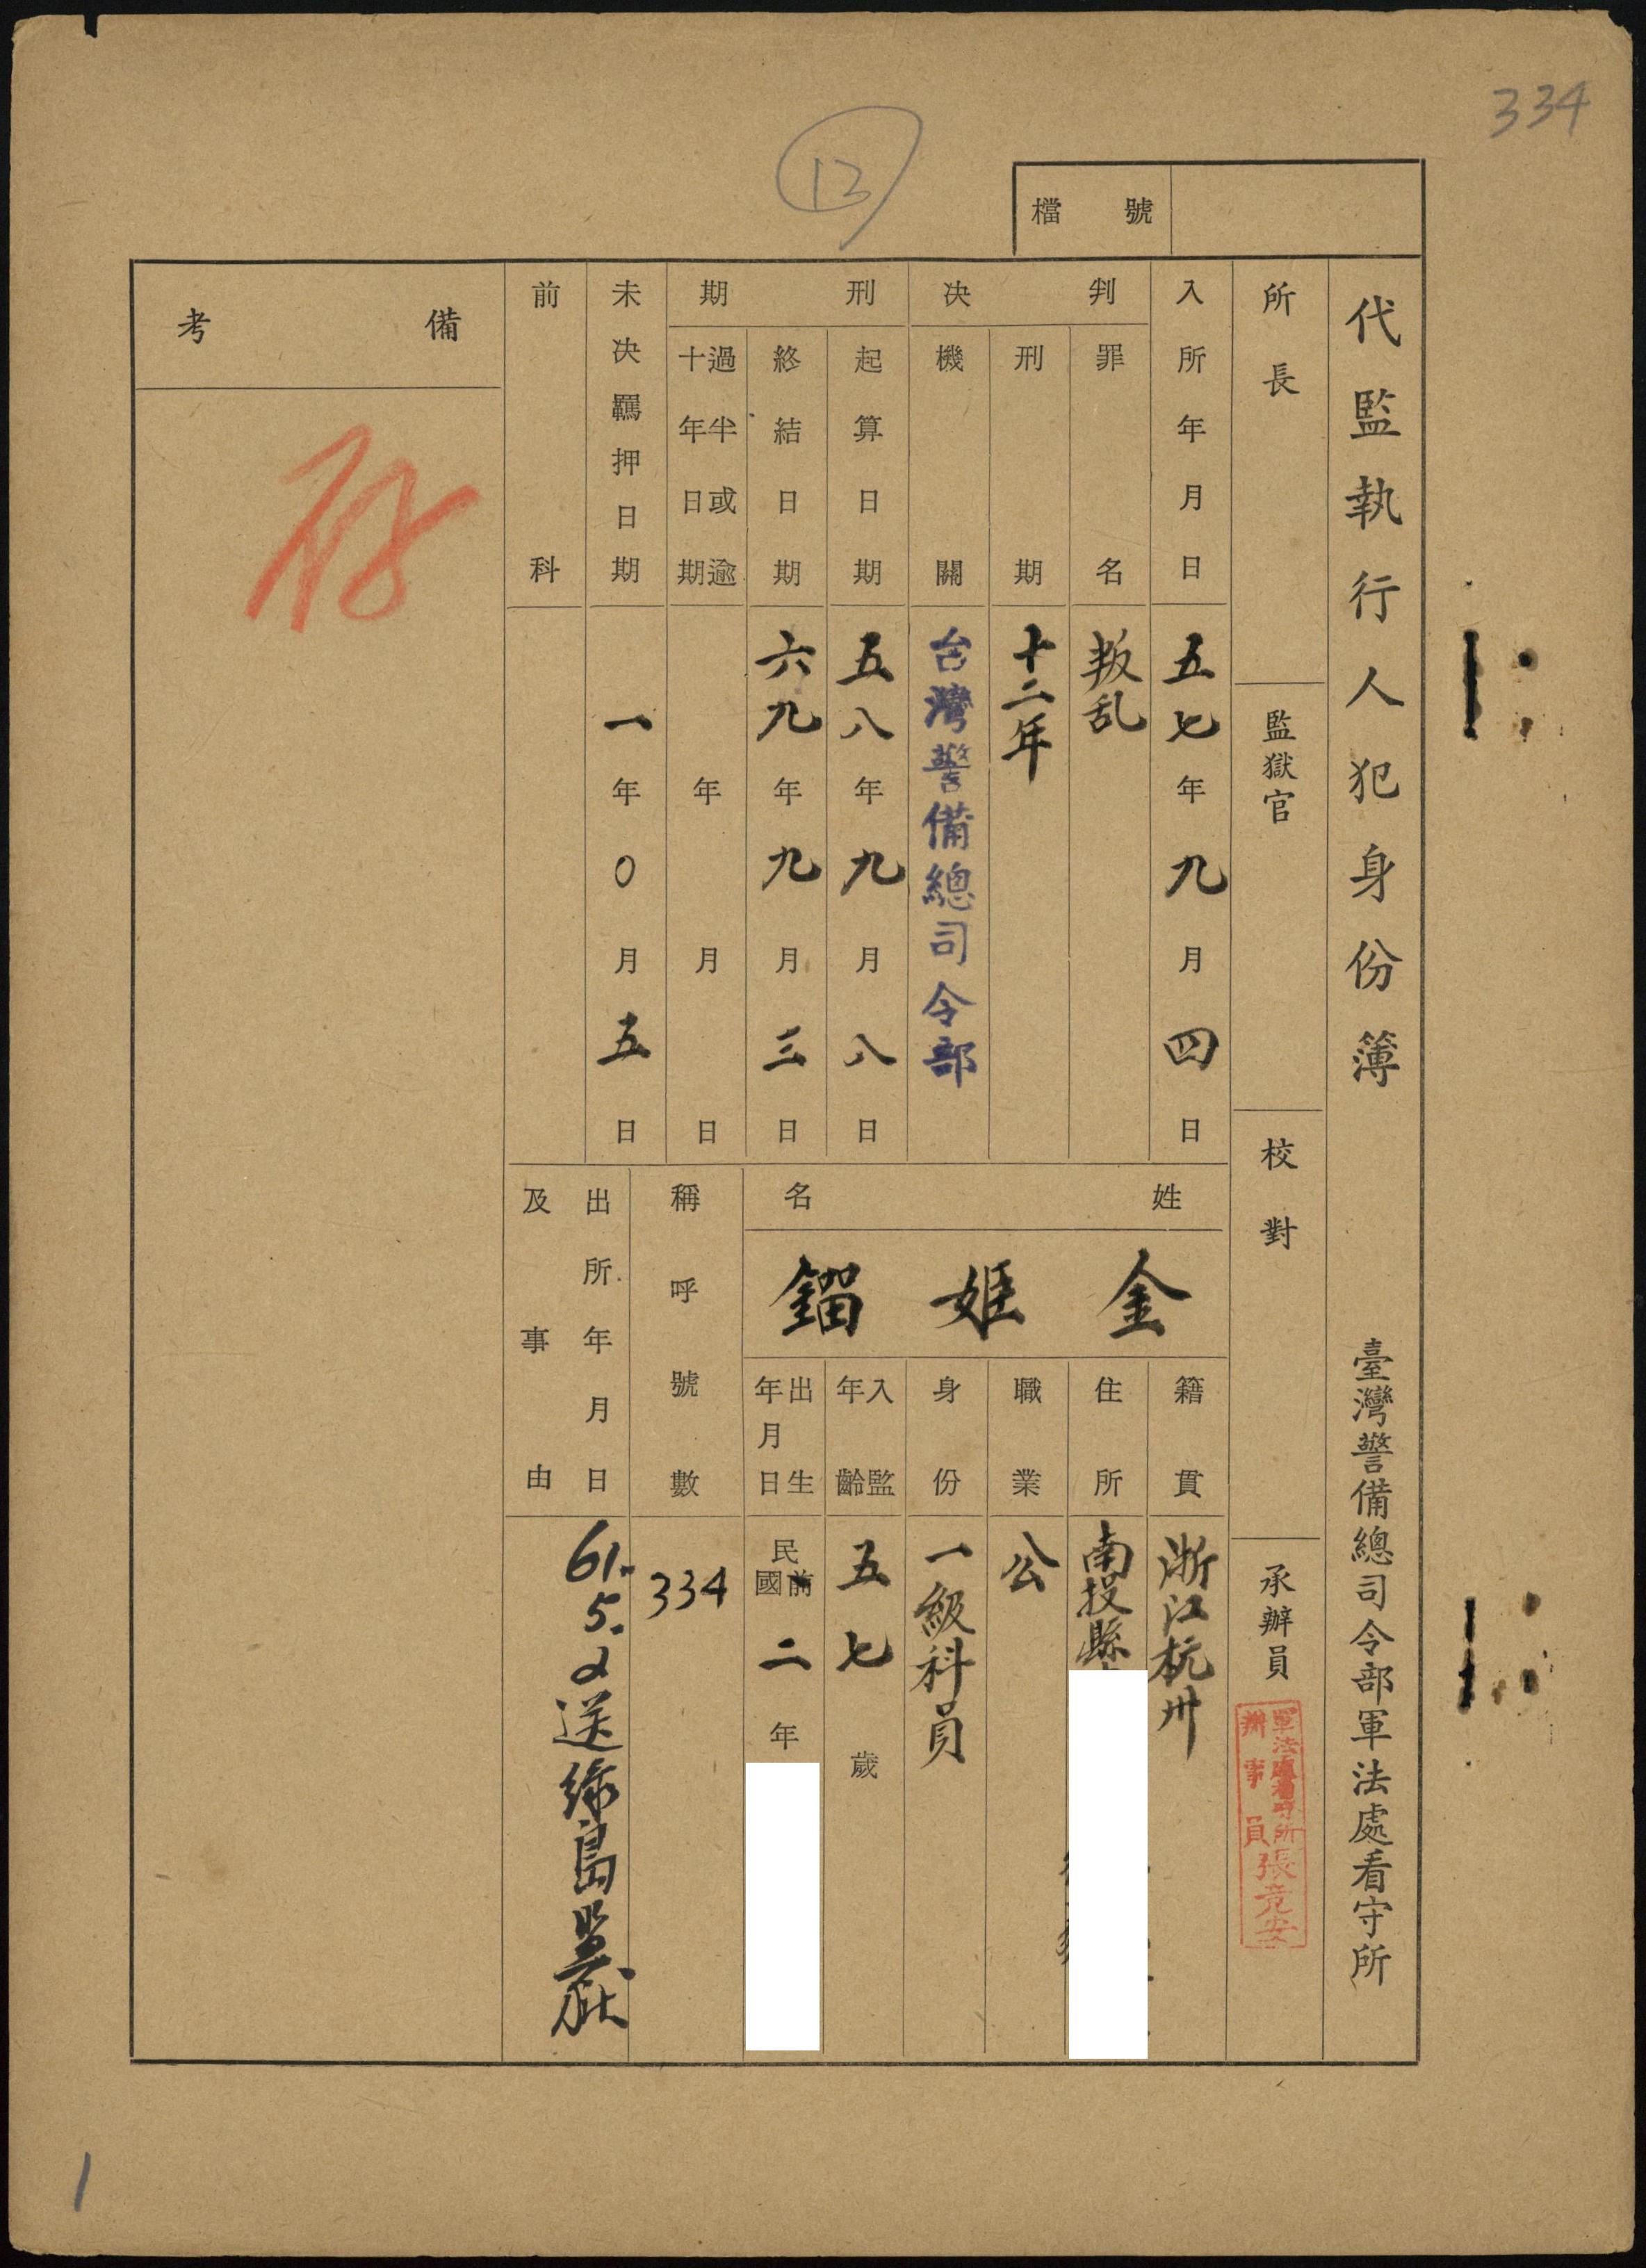 334
12
檔號
代監執行人犯身份簿 臺灣警備總司令部軍法處看守所
所長
監獄官
校對
承辦員
軍法處看守所
辦事員
入所年月日 五七年九月四日
判決
罪名 叛乱
刑期 十二年
機關 台灣警備總司令部
刑期
起算日期 五八年九月八日
終結日期 六九年九月三日
過半或逾十年日期 年 月 日
未決羈押日期 一年0月五日
前科
姓名
金姬鎦
籍貫 浙江杭州
住所 南投縣
職業 公
身份 一級科員
入監年齡 五七歲
出生年月日 民國前二年
稱呼號數 334
出所年月日及事由 61.5.2送綠島監獄
備考
1